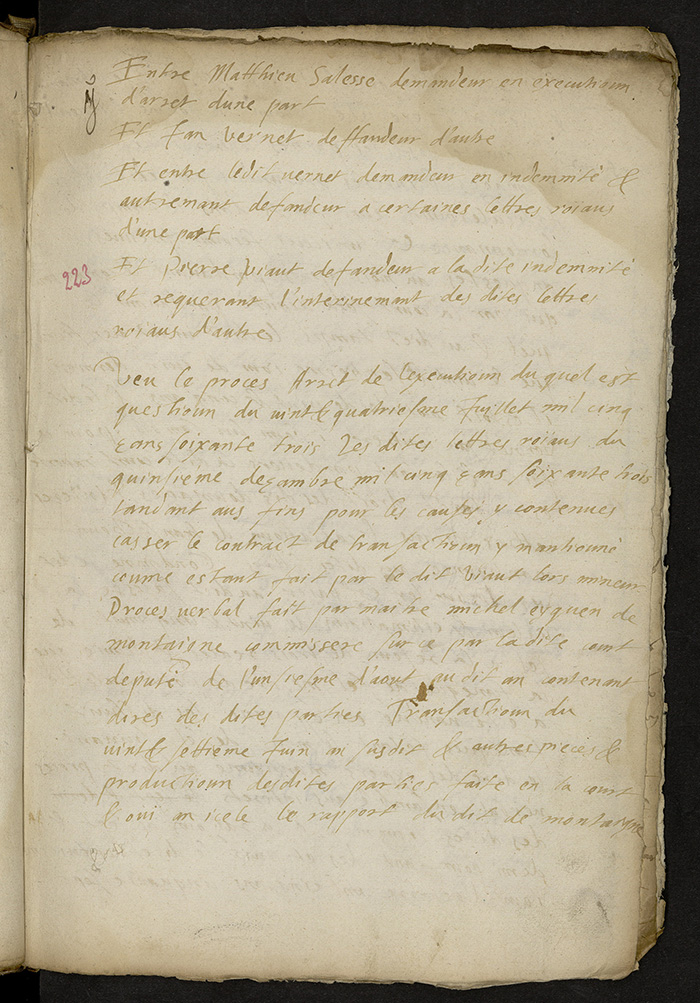 Entre Matthieu Salesse demandeur en executioun
d'arret dune part
Et Jan Vernet deffandeur d'autre
Et entre ledit vernet demandeur en indemnité &
autremant defandeur a certaines lettres roiaus
d'une part
223
Et Pierre Viaut defandeur a la dite indemnité
et requerant l'interinemant des dites lettres
roiaus d'autre
Veu le proces Arret de l'executioun du quel est
questioun du vint & quatriesme Juillet mil cinq
çans soixante trois Les dites lettres roiaus du
quinsieme deçambre mil cinq çans soixante trois
tandant aus fins pour les causes y contenues
casser le contract de transactioun y mantioune
coume estant fait par le dit Viaut lors mineur
Proces verbal fait par maitre michel eyquen de
montaigne commissere sur ce par la dite court
deputé de l'unsiesme d'aout au dit an contenant
dires des dites parties Transactioun du
vint & settieme Juin an susdit & autres pieces &
productioun desdites parties faite en la court
& oui an icele le rapport du dit de montaigne